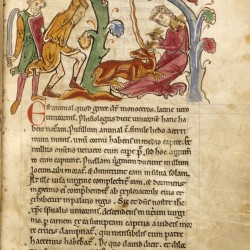 Est animal quod grece dicitur monoceros. latine vero
unicornis. Phisiologus dicit unicornē hanc ha
bere naturam. Pusillum animal ē simile hedo acerri
mum nimis. unū cornu habens in medio capite. Et
nullus omnino venator eum capere potest.
eum capiunt. Puellam virginem ducunt in illum
locum ubi morat. & dimittunt eam in silvam solam.
At ille visa virgine complectit eam, et dormiens in
gremio ei comprehendit ab exploratorib; eius et
exhibet in palacio regis. Sic et dns nr ihs
xps spiritalis unicornis, descendens in uterum virgi
nis. p carnem ex ea sumptam captus a iudeis morte
crucis dampnatus. qui invisibilis cum patre
hactenus habebat. De quo david dicit. et dilec